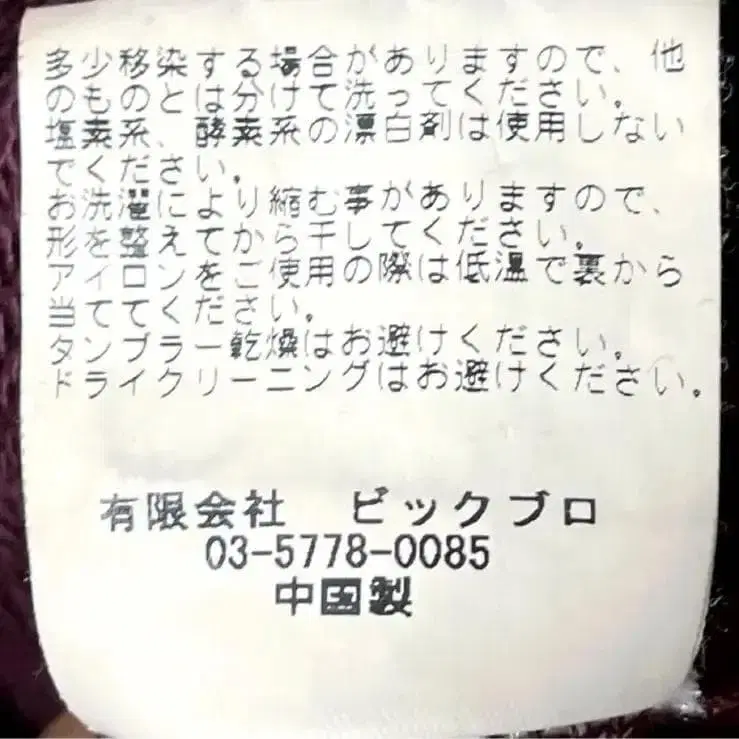 多少移染する場合がありますので、他
のものとは分けて洗ってください。
塩素系、酵素系の漂白剤は使用しない
でください。
お洗濯により縮む事がありますので、
形を整えてから干してください。
アイロンをご使用の際は低温で裏から
当ててください。
タンブラー乾燥はお避けください。
ドライクリーニングはお避けください。
有限会社　ビックブロ
03-5778-0085
中国製